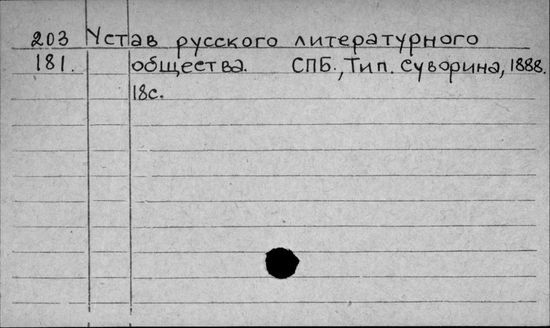 203 Устав русского литературного
181. общества. СПБ., Тип. Суворина, 1888.
18с.